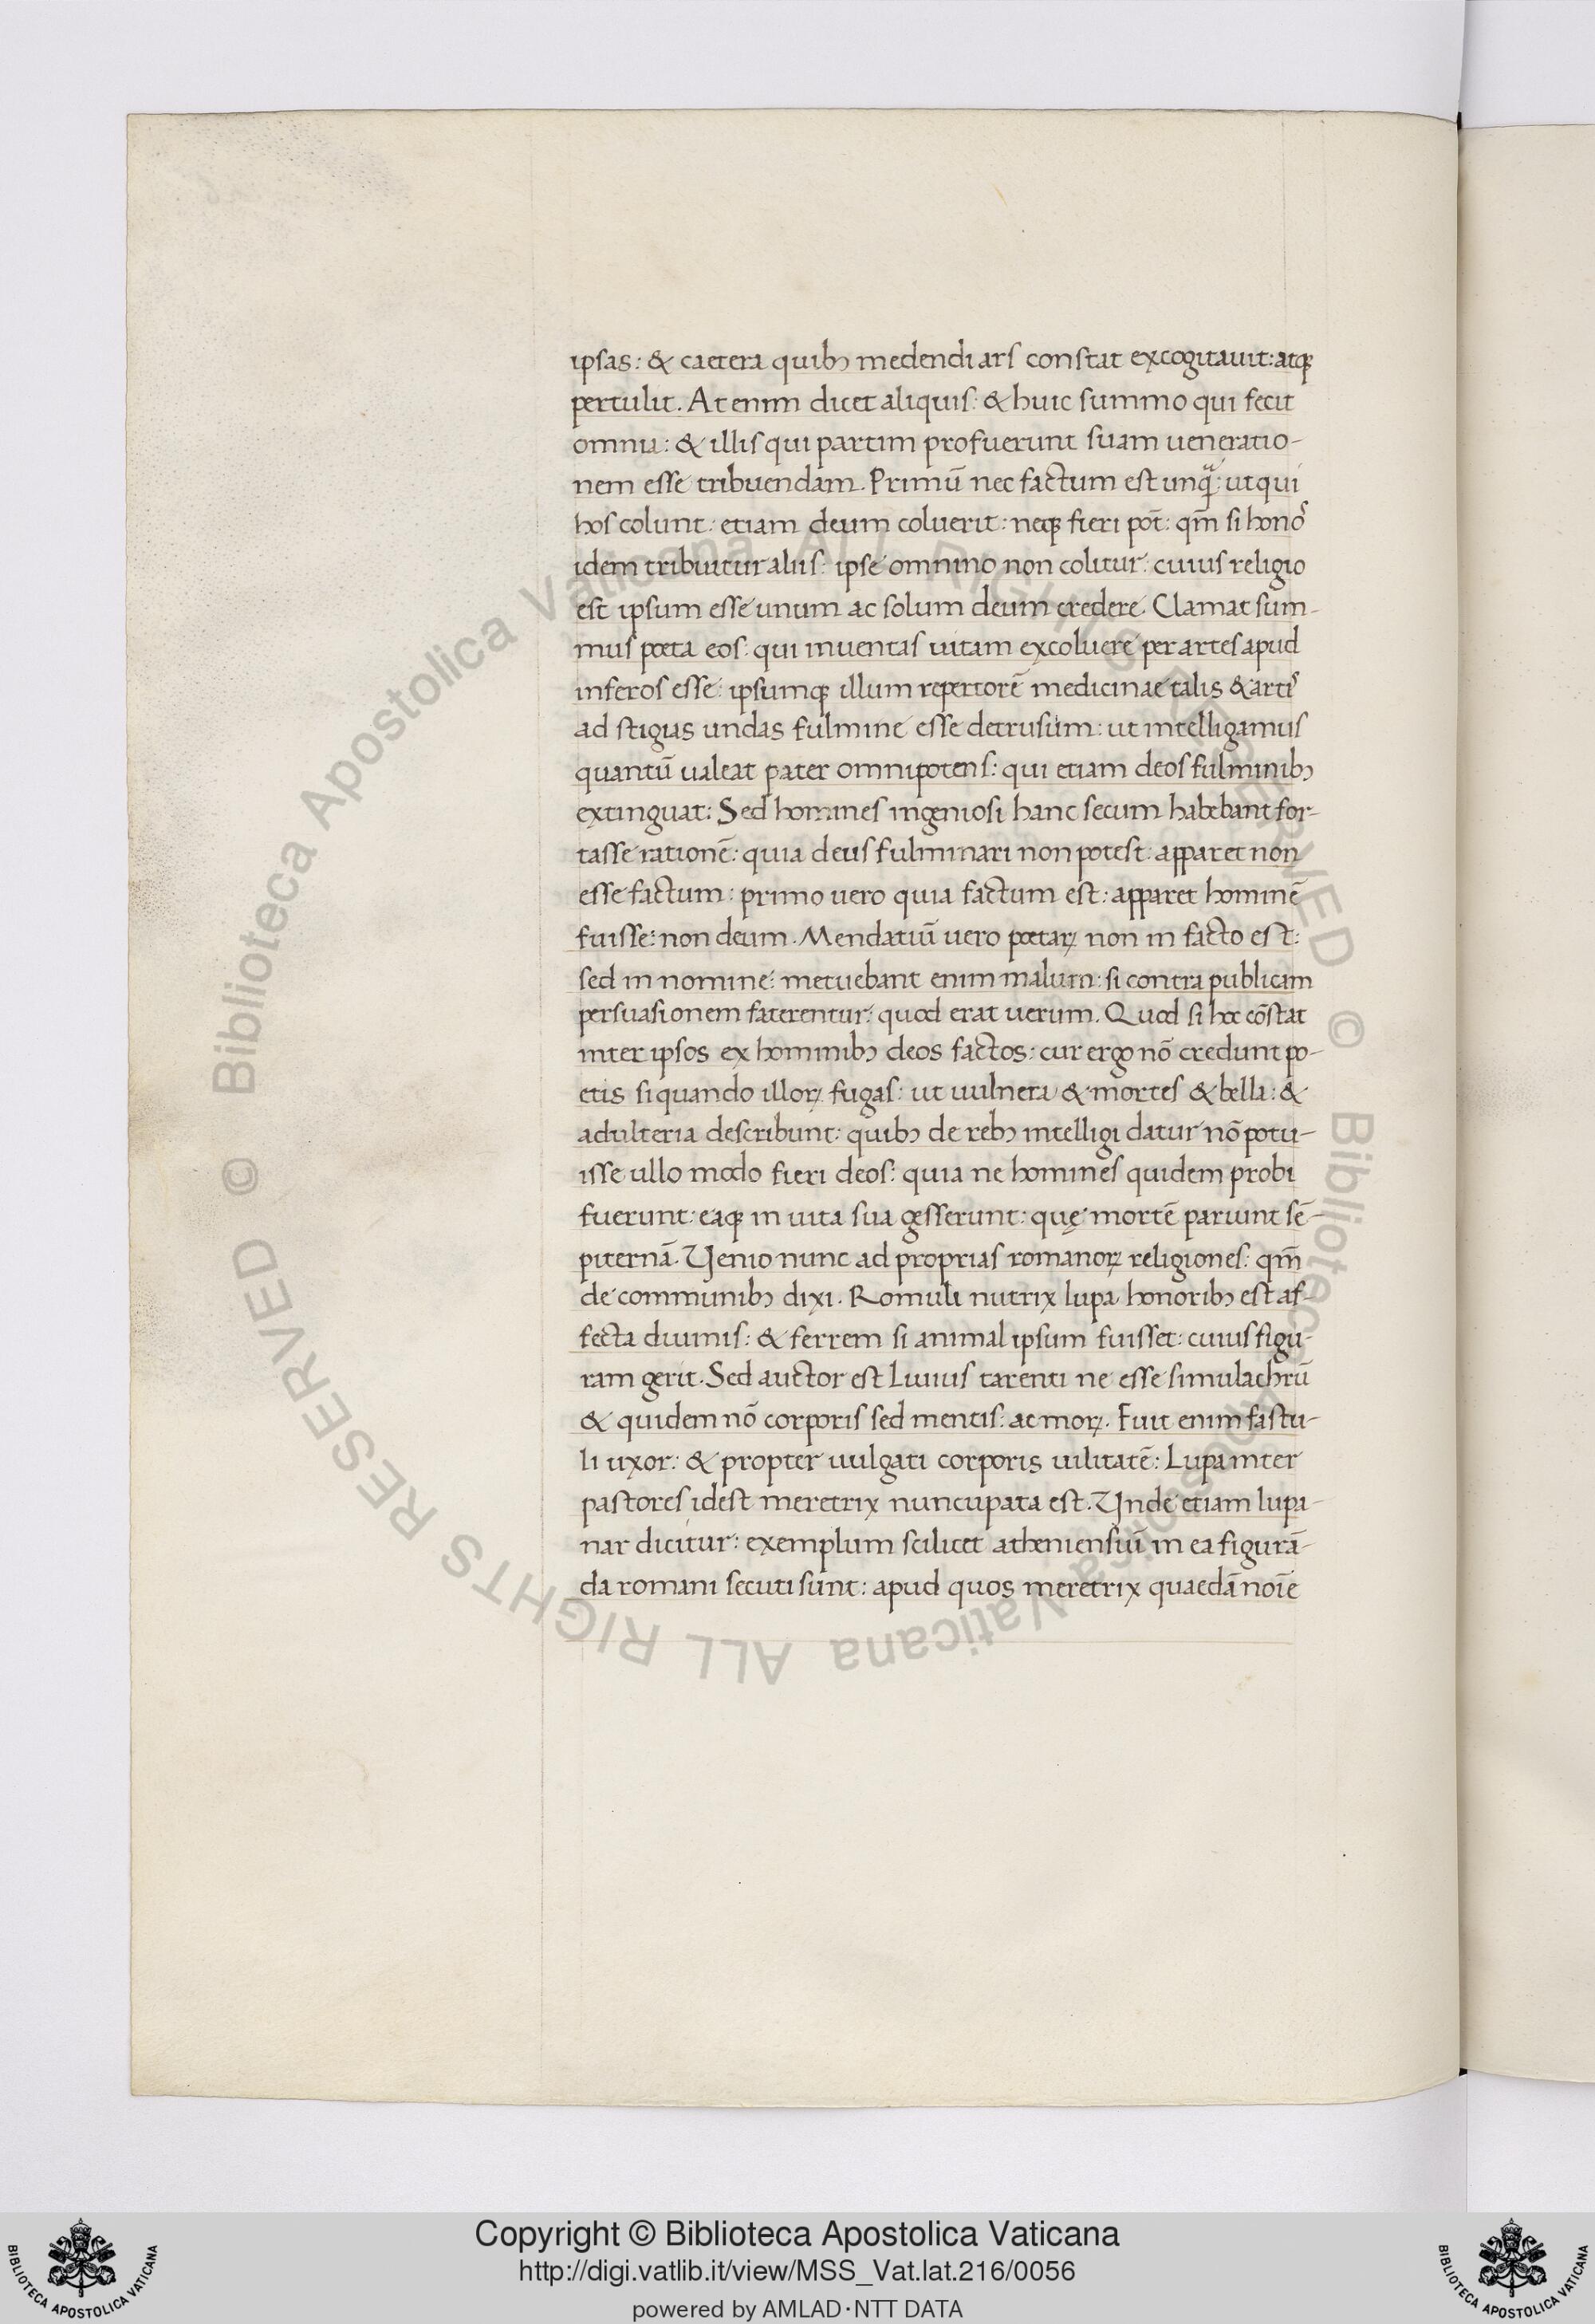 ipsas: & caetera quibꝰ medendi ars constat excogitauit: atqꝫ
pertulit. At enim dicet aliquis: & huic summo qui fecit
omnia: & illis qui partim profuerunt suam ueneratio-
nem esse tribuendam. Primū nec factum est unq̄: ut qui
hos colunt: etiam deum coluerit: neqꝫ fieri pot̄: qm̄ si hono
idem tribuitur aliis: ipse omnino non colitur: cuius religio
est ipsum esse unum ac solum deum credere. Clamat sum-
mus poeta eos: qui inuentas uitam excoluere per artes apud
inferos esse: ipsumqꝫ illum repertorē medicinae talis & arti
ad stigias undas fulmine esse detrusum: ut intelligamus
quantū ualeat pater omnipotens: qui etiam deos fulminibꝰ
extinguat: Sed homines ingeniosi hanc secum habebant for-
tasse rationē: quia deus fulminari non potest: apparet non
esse factum: primo uero quia factum est: apparet hominē
fuisse: non deum. Mendatiū uero poetaꝝ non in facto est:
sed in nomine: metuebant enim malum: si contra publicam
persuasionem faterentur: quod erat uerum. Quod si hoc cōstat
inter ipsos ex hominibꝰ deos factos: cur ergo nō credunt po-
etis si quando illoꝝ fugas: ut uulnera & mortes & bella: &
adulteria describunt: quibꝰ de rebꝰ intelligi datur nō potu-
isse ullo modo fieri deos: quia ne homines quidem probi
fuerunt: eaqꝫ in uita sua gesserunt: quę mortē pariunt sē-
piternā. Venio nunc ad proprias romanoꝝ religiones: qm̄
de communibꝰ dixi. Romuli nutrix lupa honoribꝰ est af-
fecta diuinis: & ferrem si animal ipsum fuisset: cuius figu-
ram gerit. Sed auctor est Liuius tarenti ne esse simulachrū
& quidem nō corporis sed mentis: ac moꝝ. Fuit enim fastu-
li uxor: & propter uulgati corporis uilitatē: Lupa inter
pastores idest meretrix nuncupata est. Vnde etiam lupa-
nar dicitur: exemplum scilicet atheniensiū in ea figurā-
da romani secuti sunt: apud quos meretrix quaedā noīe
Copyright © Biblioteca Apostolica Vaticana
http://digi.vatlib.it/view/MSS_Vat.lat.216/0056
powered by AMLAD·NTT DATA
BIBLIOTECA APOSTOLICA VATICANA
BIBLIOTECA APOSTOLICA VATICANA
© Biblioteca Apostolica Vaticana ALL RIGHTS RESERVED © Biblioteca Apostolica Vaticana ALL RIGHTS RESERVED